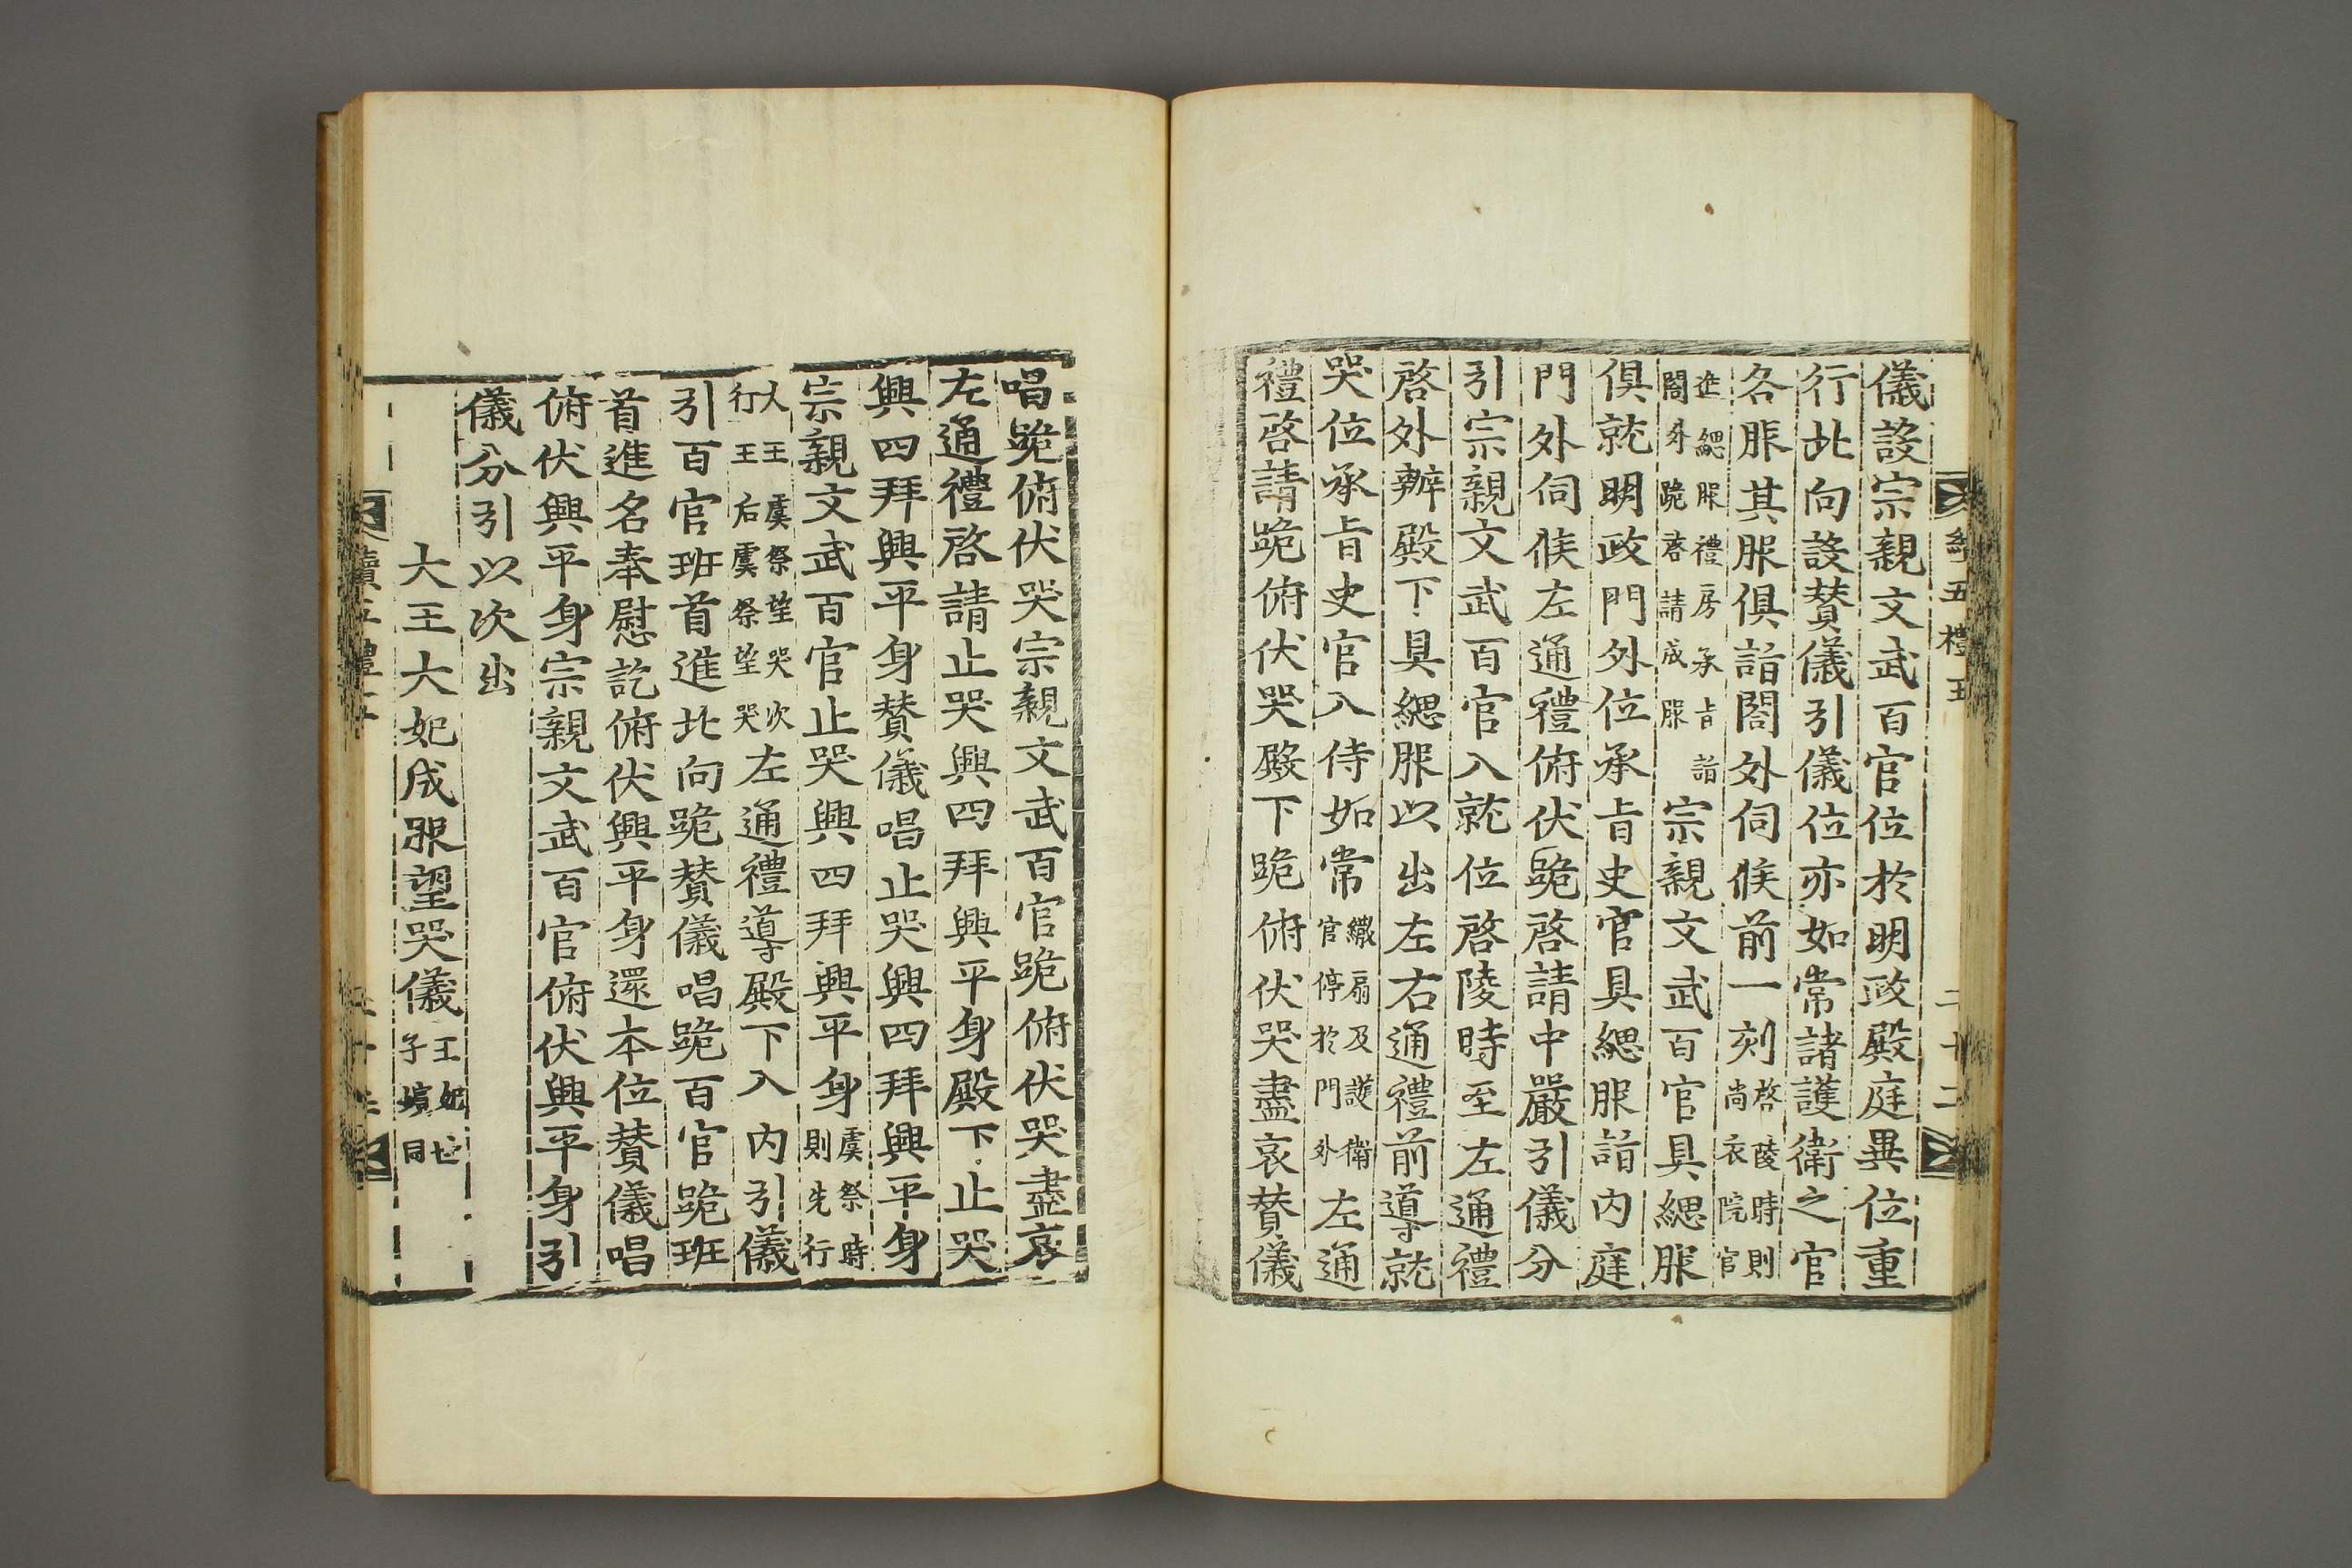 儀設宗親文武百官位於明政殿庭異位重
行北向設贊儀引儀位亦如常諸護衛之官
各服其服俱詣閤外伺候前一刻啓陵時則尚衣院官
進緦服禮房承旨詣閤外跪啓請成服宗親文武百官具緦服
俱就明政門外位承旨史官具緦服詣內庭
門外伺候左通禮俯伏跪啓請中嚴引儀分
引宗親文武百官入就位啓陵時至左通禮
啓外辦殿下具緦服以出左右通禮前導就
哭位承旨史官入侍如常繖扇及護衛官停於門外左通
禮啓請跪俯伏哭殿下跪俯伏哭盡哀贊儀
唱跪俯伏哭宗親文武百官跪俯伏哭盡哀
左通禮啓請止哭興四拜興平身殿下止哭
興四拜興平身贊儀唱止哭興四拜興平身
宗親文武百官止哭興四拜興平身虞祭時則先行
大王虞祭望哭次行王后虞祭望哭左通禮導殿下入內引儀
引百官班首進北向跪贊儀唱跪百官跪班
首進名奉慰訖俯伏興平身還本位贊儀唱
俯伏興平身宗親文武百官俯伏興平身引
儀分引以次出
大王大妃成服望哭儀王妃世子嬪同